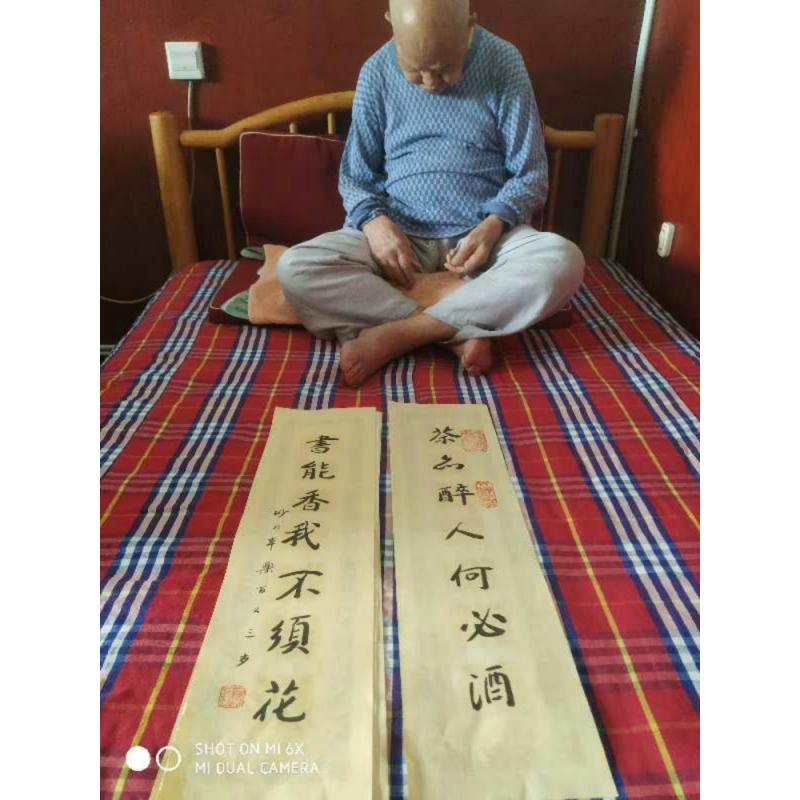 茶亦醉人何必酒
書能香我不須花
百又三岁
SHOT ON MI 6X
MI DUAL CAMERA